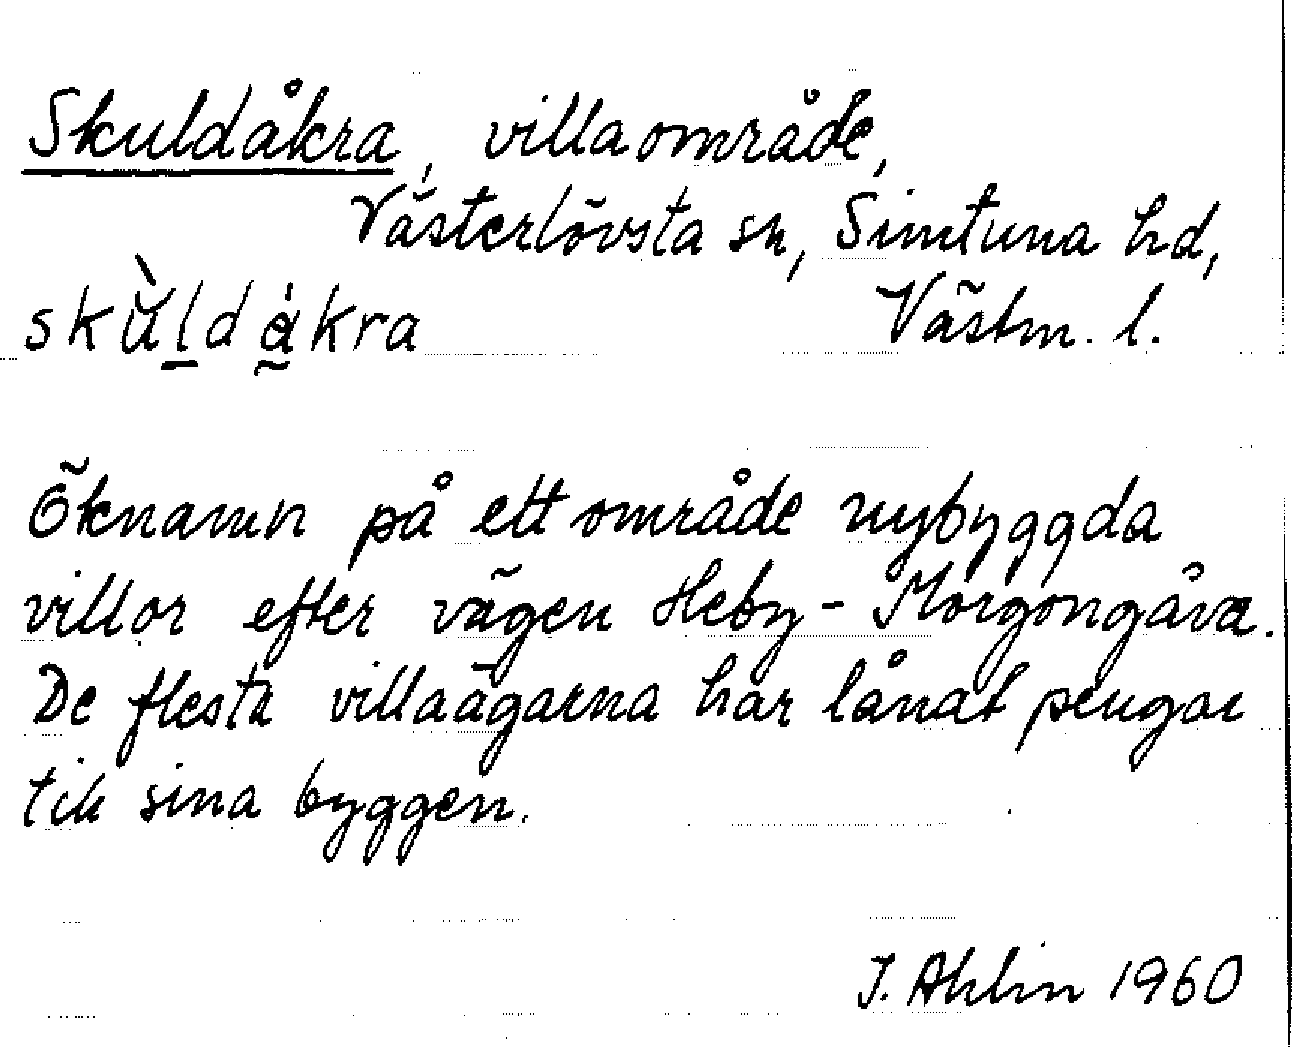 Skuldåkra, villaområde,
Västerlövsta sn, Simtuna hd,
skùldåkra Västm. l.
Öknamn på ett område nybyggda
villor efter vägen Heby - Morgongåva.
De flesta villaägarna har lånat pengar
till sina byggen.
J. Ahlin 1960